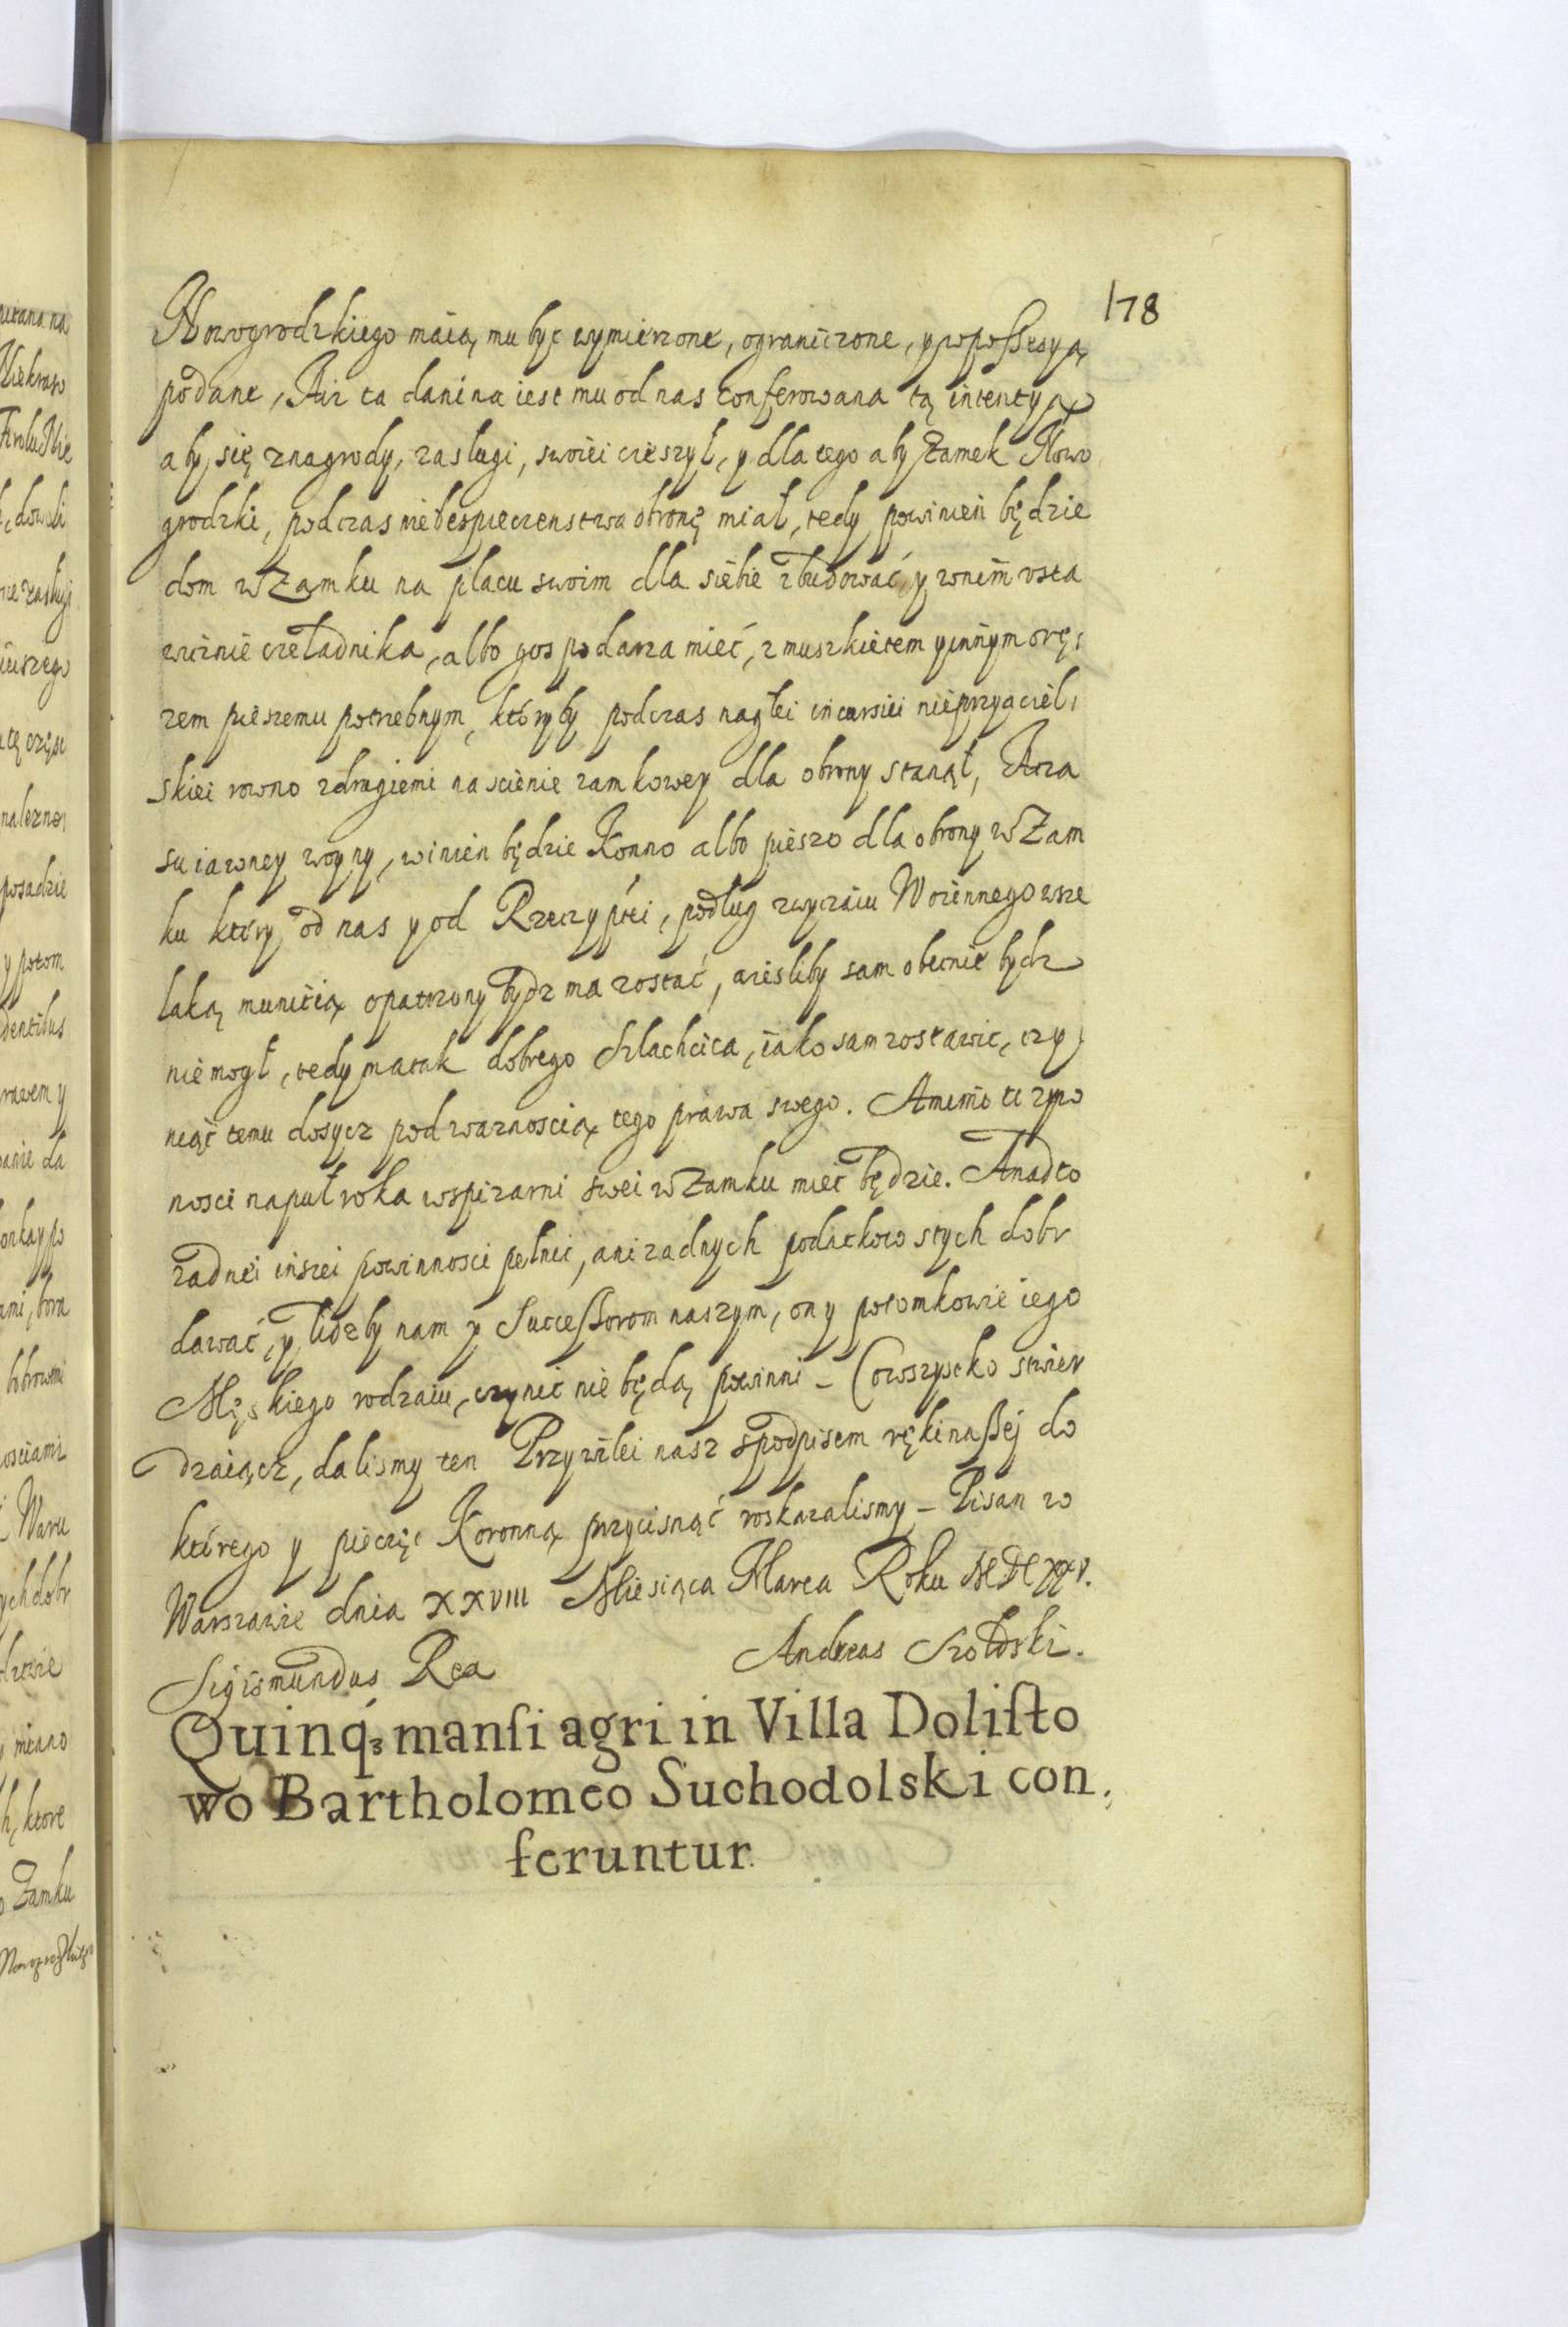 178
Nowogrodzkiego maią mu być wymierzone, ograniczone, y w possessyą
podane, Aiz ta danina iest mu od nas conferowana tą intentyą
aby się z nagrody zasługi, swoiei cieszył, y dla tego aby Zamek Nowo
grodzki, podczas niebespieczenstwa obronę miał, tedy powinien będzie
dom w Zamku na placu swoim dla siebie zbudować, y w nim vsta
wicznie czeladnika, albo gospodarza mieć, z muszkietem y innym orę,
zem pieszemu potrzebnym, któryby podczas nagłei incursiei nieprzyaciel,
skiei rowno z drugiemi na scienie zamkowey dla obrony stanął, Aza
su iawney woyny, winien będzie Konno albo pieszo dla obrony w Zam
ku który od nas y od Rzeczyptei, podług zwyczaiu Woiennego wsze
laką municią opatrzony bydz ma zostać, aiesliby sam obecnie bydz
nie mogł, tedy ma tak dobrego Szlachcica, iako sam zostawic, czy,
niąc temu dosycz pod waznoscią tego prawa swego. Amimo te zyw
nosci na puł roka w spizarni swei w Zamku mieć będzie. Anadto
zadnei inszei powinnosci pełnic, ani zadnych podatkow s tych dobr
dawać, y liczby nam y Successorom naszym, on y potomkowie iego
Męskiego rodzaiu, czynic nie będą powinni _ Co wszystko stwier
dzaiącz, dalismy ten Przywilei nasz s podpisem ręki naszej do
którego y pieczęć Koronną przycisnąć roskazalismy _ Pisan w
Warszawie dnia XXVIII Miesiąca Marca Roku MDCXXV.
Sigismundus Rex Andreas Szołdski.
Quinq́ꝫ mansi agri in Villa Dolisto
wo Bartholomeo Suchodolski con,
feruntur.